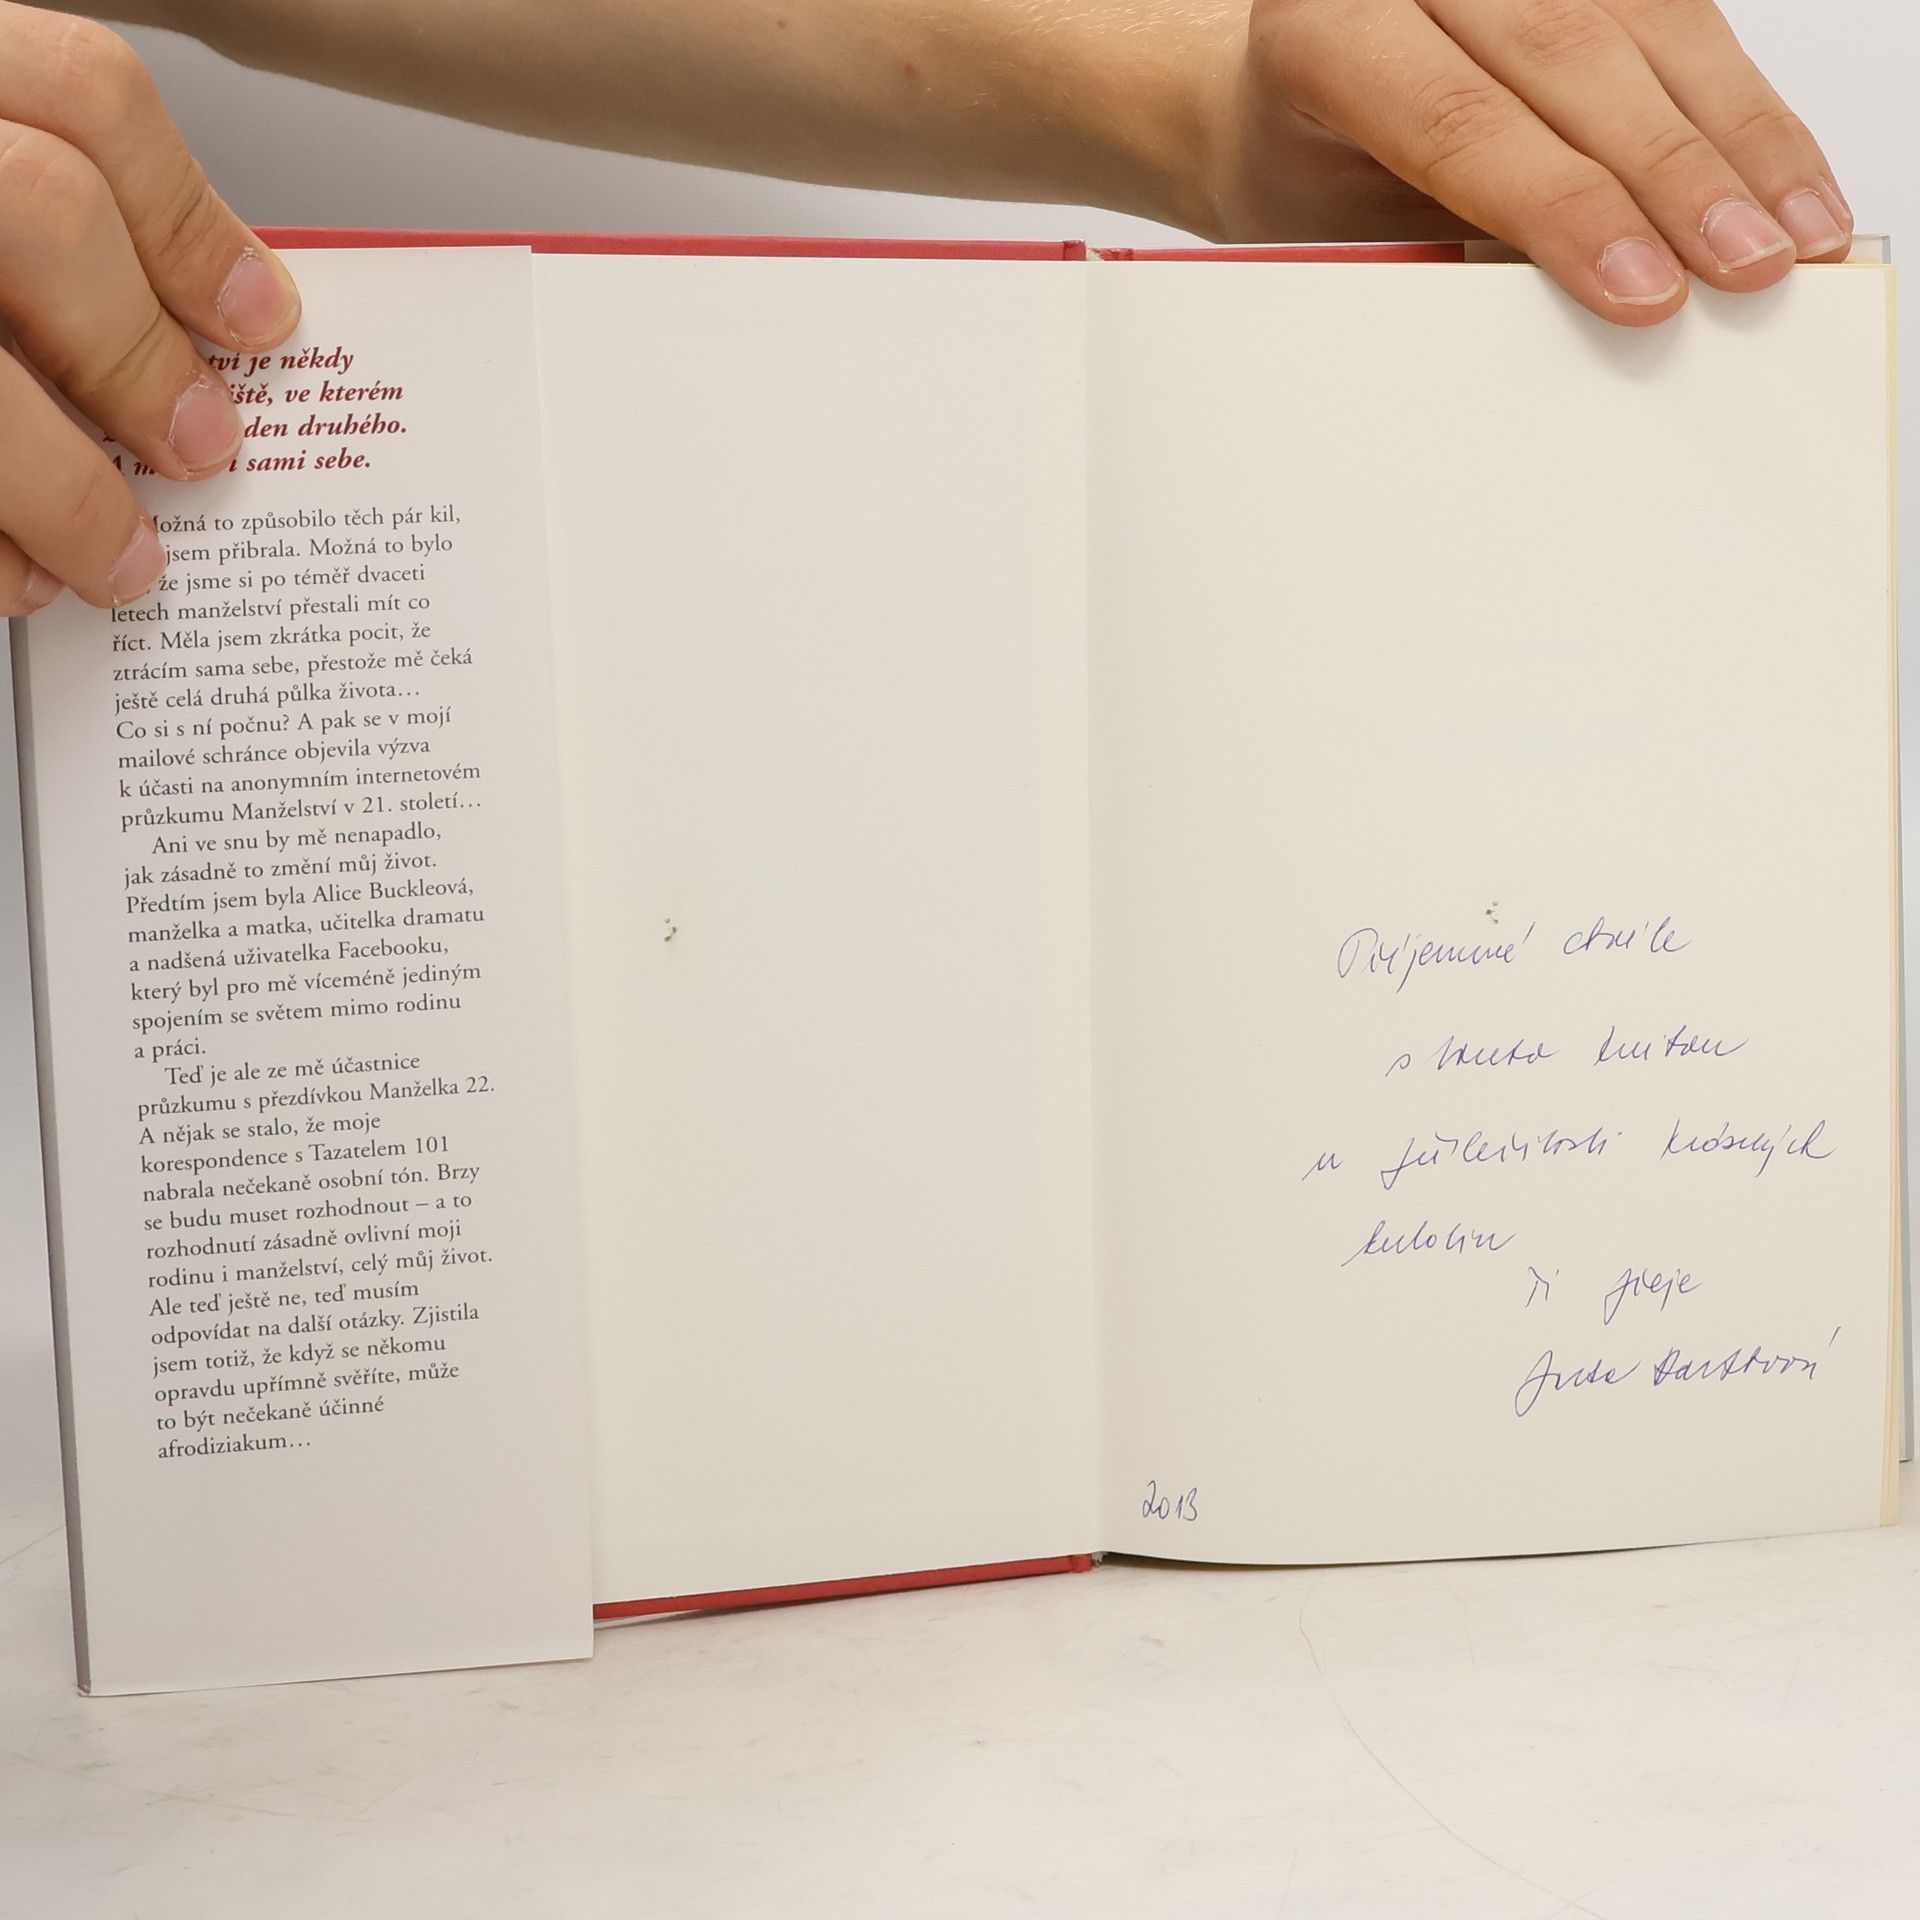 tví je někdy
iště, ve kterém
den druhého.
A m i sami sebe.
ožná to způsobilo těch pár kil,
jsem přibrala. Možná to bylo
že jsme si po téměř dvaceti
letech manželství přestali mít co
říct. Měla jsem zkrátka pocit, že
ztrácím sama sebe, přestože mě čeká
ještě celá druhá půlka života…
Co si s ní počnu? A pak se v mojí
mailové schránce objevila výzva
k účasti na anonymním internetovém
průzkumu Manželství v 21. století…
Ani ve snu by mě nenapadlo,
jak zásadně to změní můj život.
Předtím jsem byla Alice Buckleová,
manželka a matka, učitelka dramatu
a nadšená uživatelka Facebooku,
který byl pro mě víceméně jediným
spojením se světem mimo rodinu
a práci.
Teď je ale ze mě účastnice
průzkumu s přezdívkou Manželka 22.
A nějak se stalo, že moje
korespondence s Tazatelem 101
nabrala nečekaně osobní tón. Brzy
se budu muset rozhodnout – a to
rozhodnutí zásadně ovlivní moji
rodinu i manželství, celý můj život.
Ale teď ještě ne, teď musím
odpovídat na další otázky. Zjistila
jsem totiž, že když se někomu
opravdu upřímně svěříte, může
to být nečekaně účinné
afrodiziakum…
Příjemné chvíle
s touto knihou
u příležitosti krásných
kulatin
Ti přeje
2013